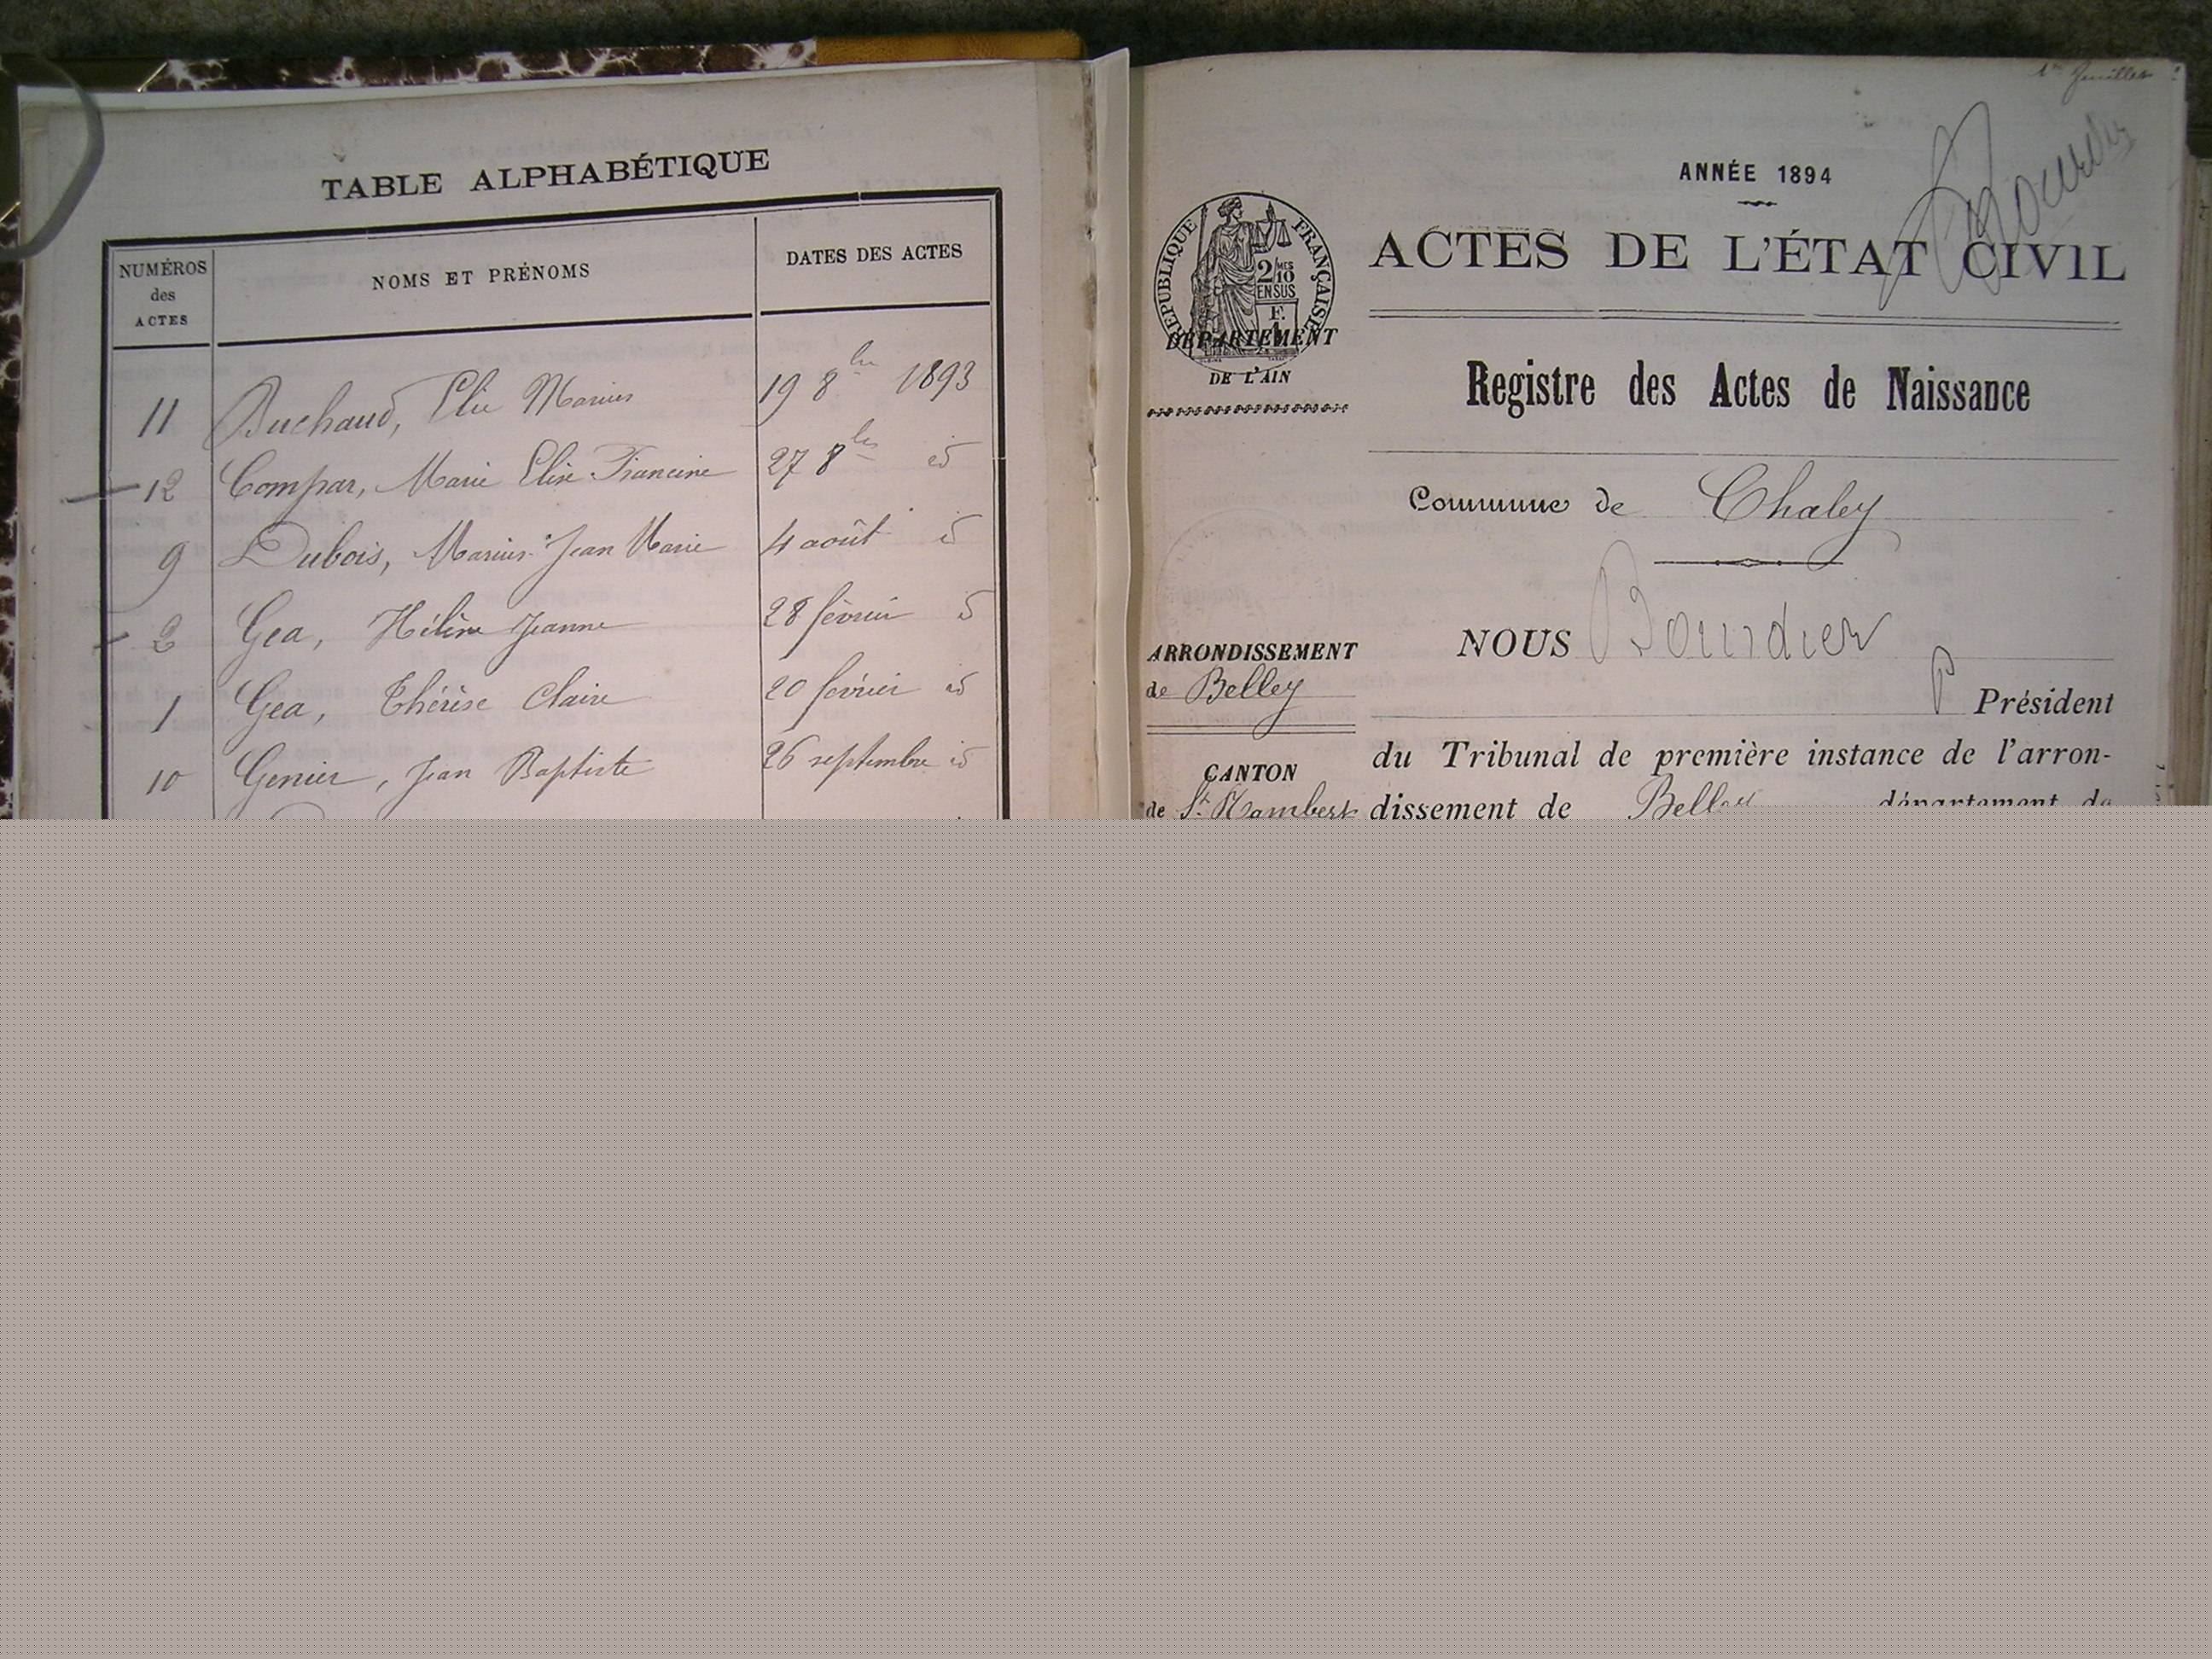 TABLE ALPHABÉTIQUE
NUMÉROS des ACTES
NOMS ET PRÉNOMS
DATES DES ACTES
11 Buchaud, Elie Marius 19 8bre 1893
12 Compar, Marie Elise Francine 27 8bre id
9 Dubois, Marius Jean Marie 4 août id
2 Gea, Hélène Jeanne 28 février id
1 Gea, Thérèse Claire 20 février id
10 Genier, Jean Baptiste 26 septembre id
1er feuillet
ANNÉE 1894
ACTES DE L'ÉTAT CIVIL
RÉPUBLIQUE FRANÇAISE
2/MES 10 EN SUS
F.
DÉPARTEMENT
DE L'AIN
Registre des Actes de Naissance
Commune de Chaley
NOUS Bourdier
ARRONDISSEMENT
de Belley
P Président
du Tribunal de première instance de l'arron-
CANTON
de St Rambert
dissement de Belley département de